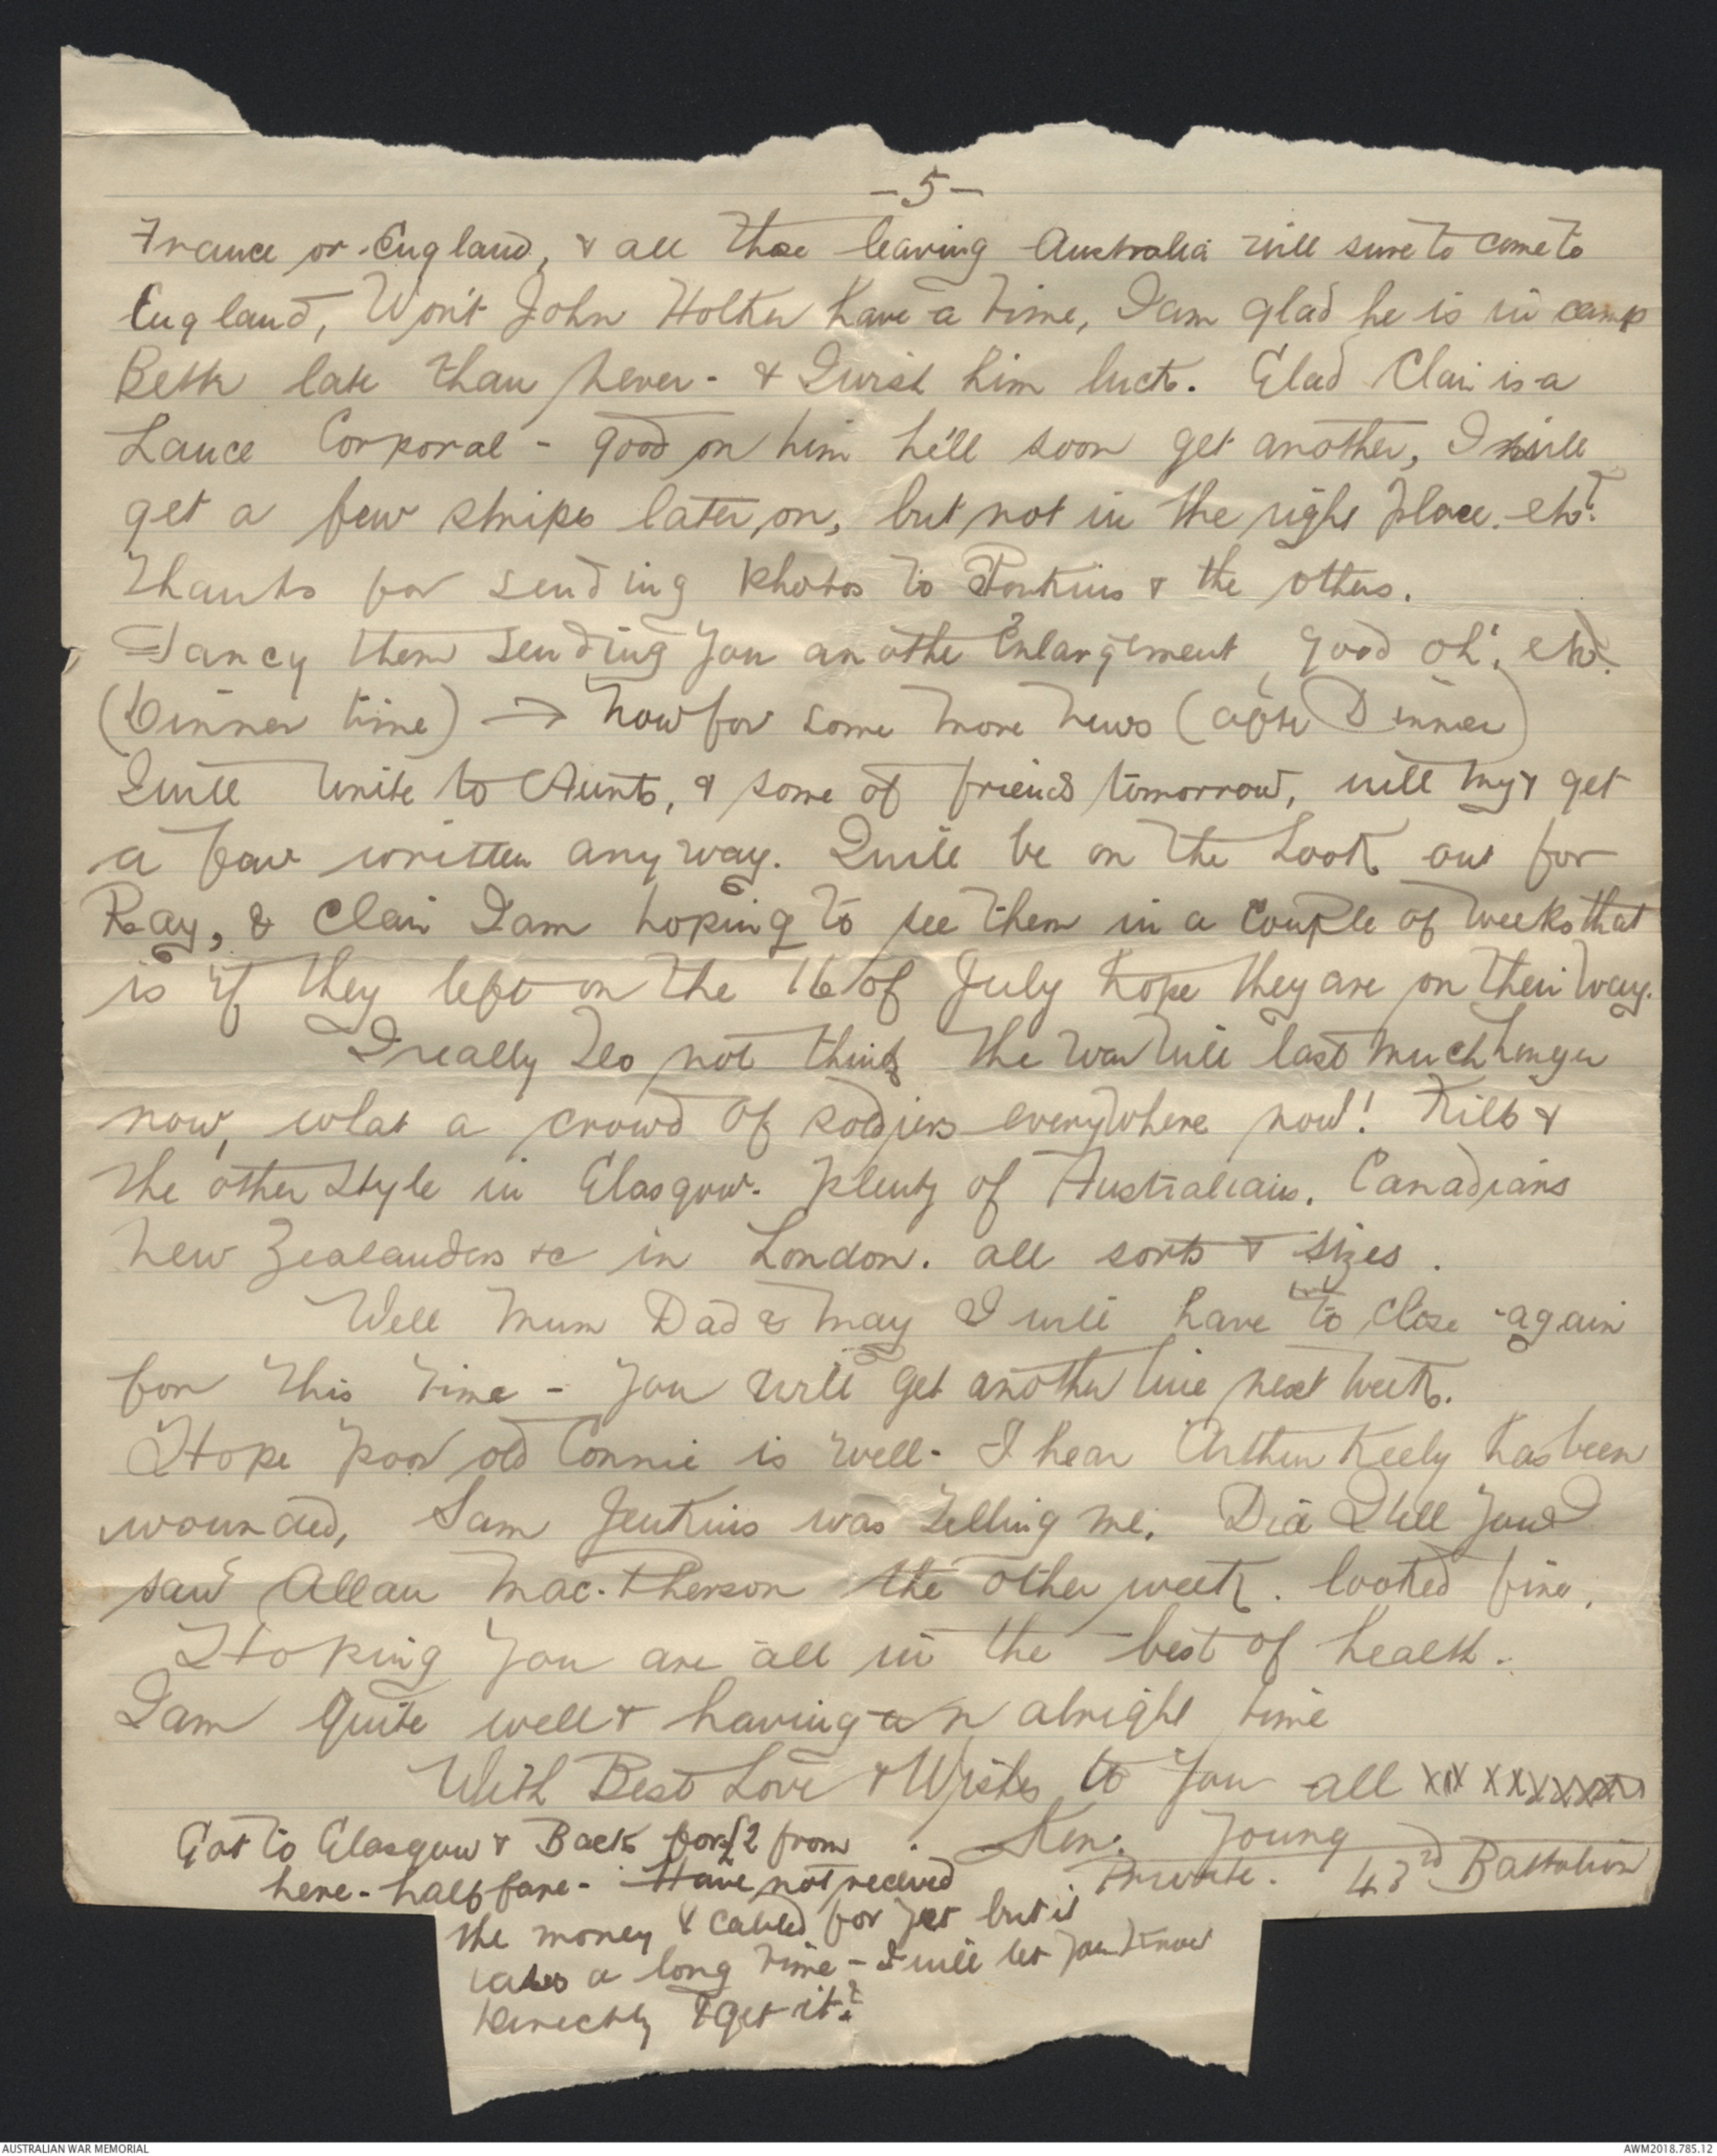 -5-
France or England, & all those leaving Australia will sure to come to
England, Won't John Holther have a time, I am glad he is in camp
Better late than never - & I wish him luck. Glad Clair is a
Lance Corporal - good on him he'll soon get another, I will
get a few stripes later on, but not in the right place. eh?
Thanks for sending photos to Perkins & the others.
Fancy them sending you anothe Enlargement, good oh! eh?
(Dinner time) → Now for some more news (after Dinner)
I will write to Aunts, & some of friends tomorrow, will try & get
a few written any way. I will be on the Look out for
Ray, & Clair I am hoping to see them in a couple of weeks that
is if they left on the 16 of July hope they are on their way.
I really do not think the war will last much longer
now, what a crowd of soldjers everywhere now! Kilts &
the other style in Glasgow. plenty of Australians. Canadians
New Zealanders &c in London. all sorts & sizes.
Well Mum Dad & May I will have to close again
for this time - you will get another line next week.
Hope poor old Connie is well - I hear Arthur Keely has been
wounded, Sam Jenkins was telling me. Did I tell you I
saw Allan Mac.Pherson the other week. looked fine.
Hoping you are all in the best of health.
I am quite well & having an alright time
With Best Love & Wishes to you all xxx xxxxxxx
Ken. Young
Private. 43rd Battalion
Got to Glasgow & Back for £2 from
here - half fare - Have not received
the money I cabled for yet but it
takes a long time - I will let you know
directly I get it.
AUSTRALIAN WAR MEMORIAL
AWM2018.785.12